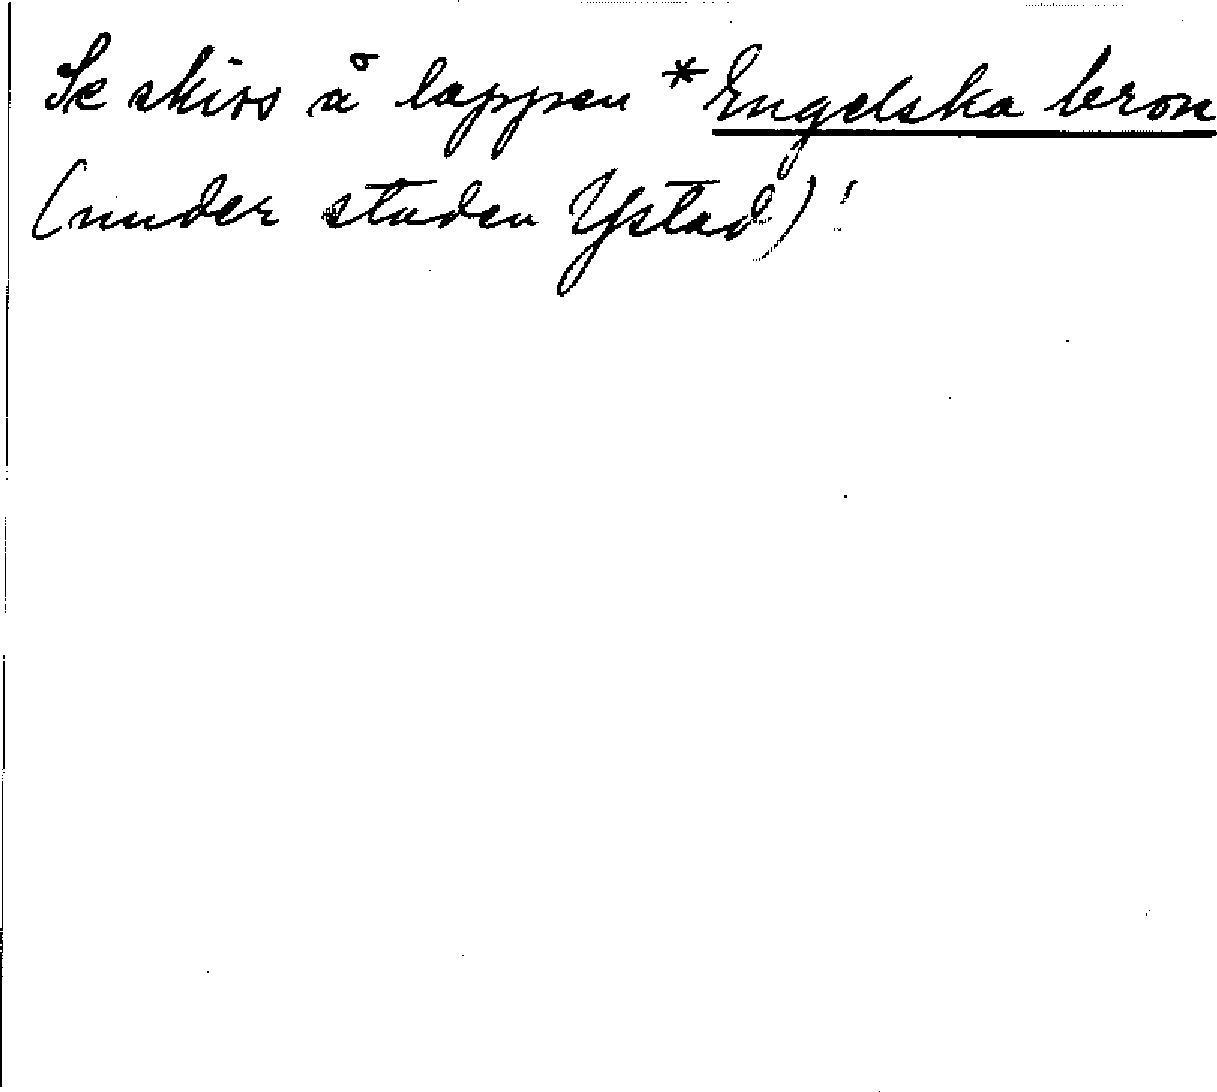 Se skiss å lappen *Engelska bron
(under staden Ystad)!